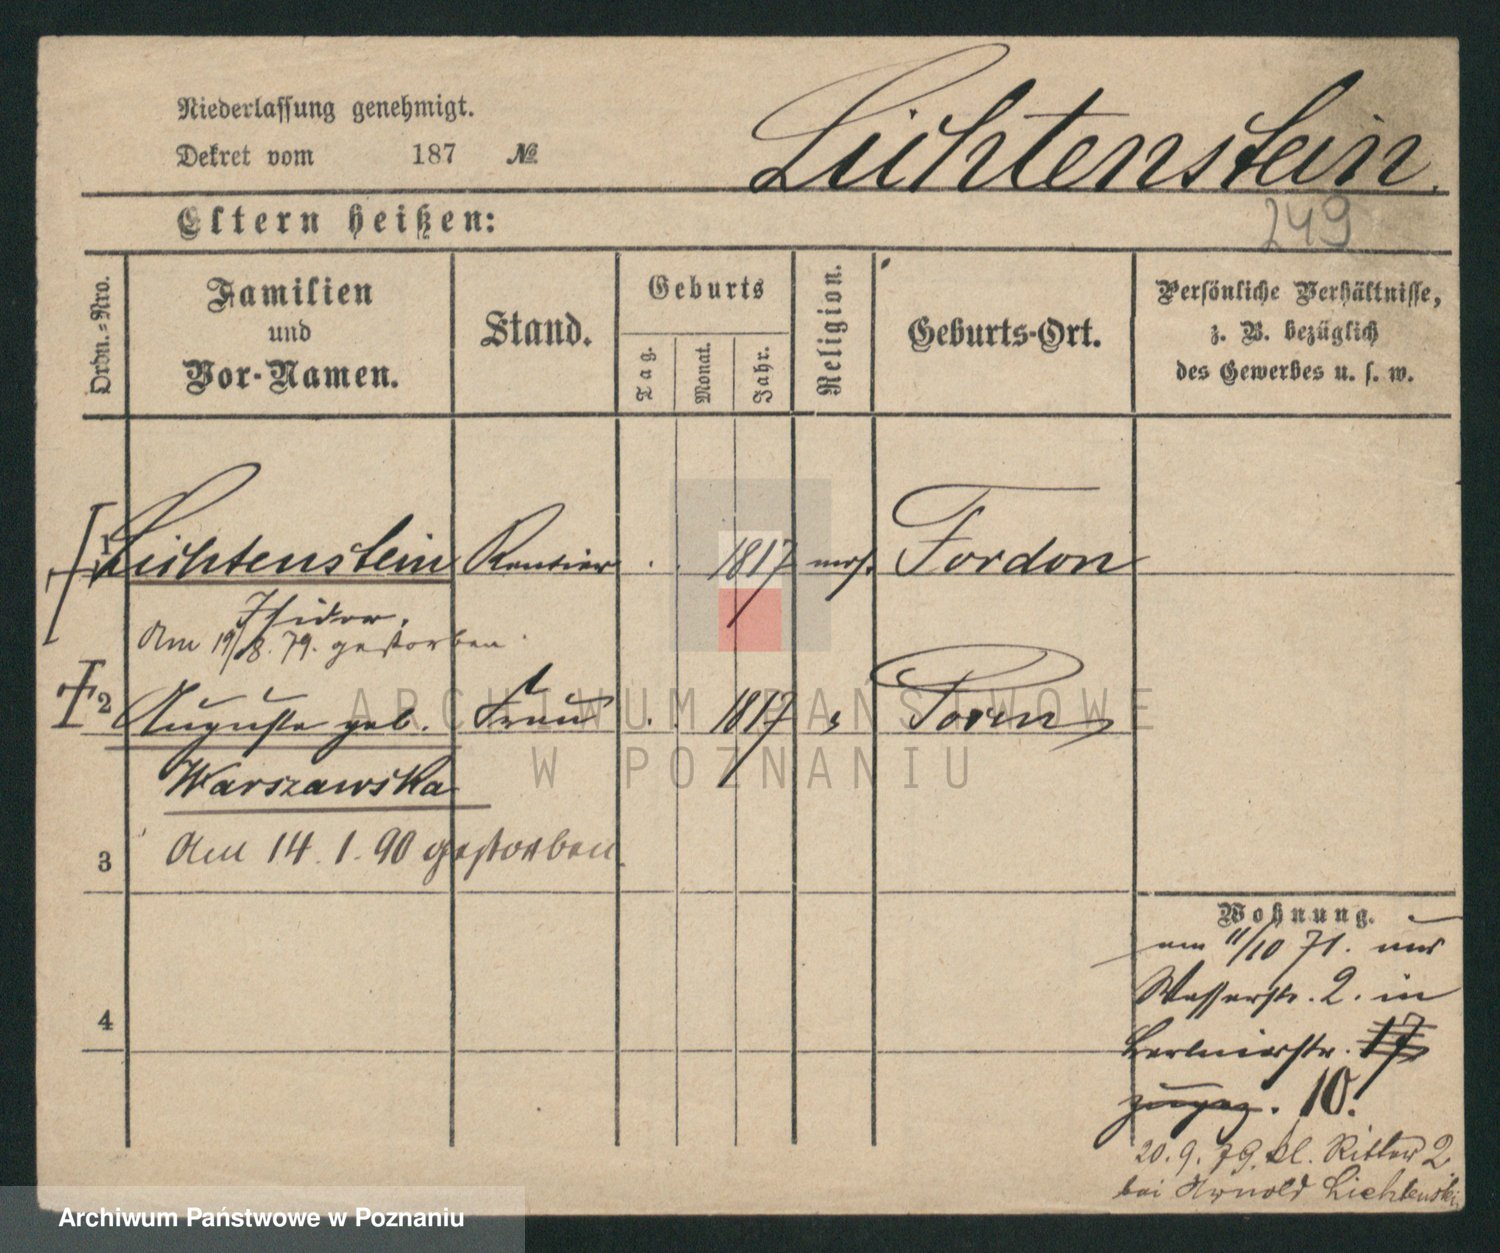 Niederlassung genehmigt.
Dekret vom 187 №
Lichtenstein.
249
Eltern heißen:
Ordn.-Nro.
Familien
und
Vor-Namen.
Stand.
Geburts
Tag.
Monat.
Jahr.
Religion.
Geburts-Ort.
Persönliche Verhältnisse,
z. B. bezüglich
des Gewerbes u. s. w.
1 Lichtenstein Rentier . . 1817 mos. Fordon
Isidor.
Am 19/8. 79. gestorben.
2 Auguste geb. Frau . . 1817
Warszawska
3 Am 14. 1. 90 gestorben.
4
Wohnung.
am 11/10 71. aus
Wasserstr. 2. in
Berlinerstr. 17
zugez. 10.
20. 9. 79. kl. Ritter 2
bei Arnold
ARCHIWUM PAŃSTWOWE
W POZNANIU
Archiwum Państwowe w Poznaniu